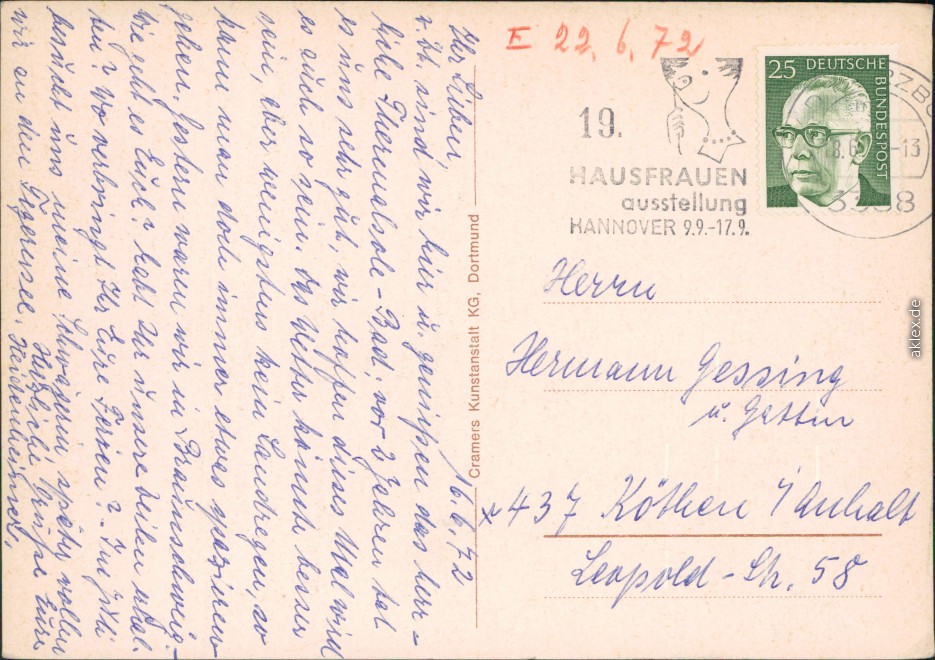 E 22.6.72
19.
HAUSFRAUEN
ausstellung
HANNOVER 9.9.-17.9.
25 DEUTSCHE
BUNDESPOST
-13
3388
16.6.72
Ihr Lieben,
z. Zt. sind wir hier u. genießen das herr-
liche Thermalsole-Bad. vor 2 Jahren tat
es uns sehr gut, wir hoffen dieses Mal wird
es auch so sein. Das Wetter könnte besser
sein, aber wenigstens kein Landregen, so
kann man doch immer etwas spazieren
gehen. Gestern waren wir in Braunschweig.-
Wie geht es Euch? habt Ihr unsere beiden
Wo verbringt Ihr Eure Ferien? - Im Juli
besucht uns meine Schwägerin später wollen
wir an den Tegernsee. Herzliche Grüße Eure
Cramers Kunstanstalt KG, Dortmund
Herrn
Hermann Gessing
u. Gattin
x 437 Köthen / Anhalt
Leopold-Str. 58
aklex.de